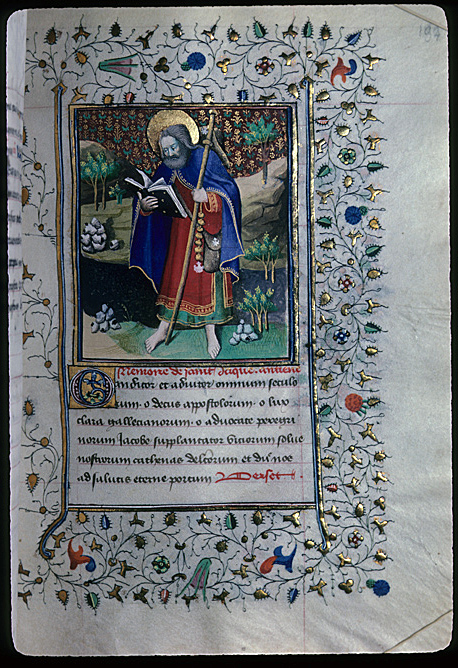 Memoire de saint Jaque. antiene
O Adiutor et adiutor omnium seculo
rum. o decus appostolorum. o lux
clara gallecianorum. o aduocate peregri
norum Jacobe supplantator viciorum solue
nostrorum cathenas delictorum et duc nos
ad salutis eterne portum Verset.